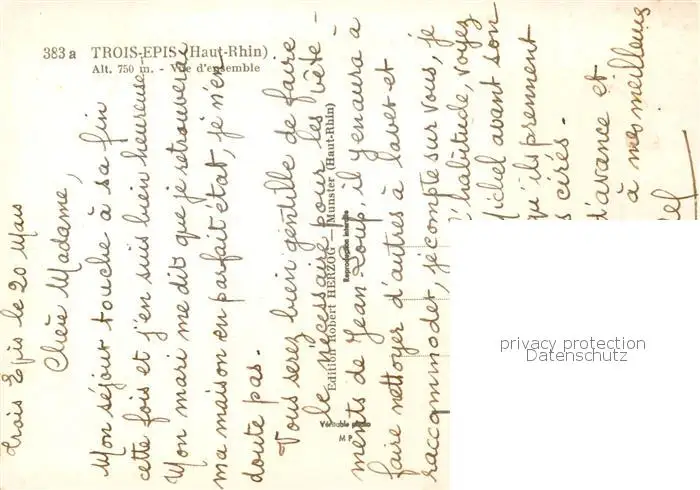 383 a TROIS-EPIS (Haut-Rhin)
Alt. 750 m. - Vue d'ensemble
Trois Epis le 20 Mars
Chère Madame,
Mon séjour touche à sa fin
cette fois et j'en suis bien heureuse-
Mon mari me dit que je retrouverai
ma maison en parfait état, je n'en
doute pas.
Vous serez bien gentille de faire
le nécessaire pour les vête-
ments de Jean-Loup, il y en aura à
faire nettoyer d'autres à laver et
raccommoder, je compte sur vous, je
l'habitude, voyez
Michel avant son
qu'ils prennent
cirés.
d'avance et
à mes meilleurs
Edition Robert HERZOG — Munster (Haut-Rhin)
Reproduction interdite
Véritable photo
M P
privacy protection
Datenschutz